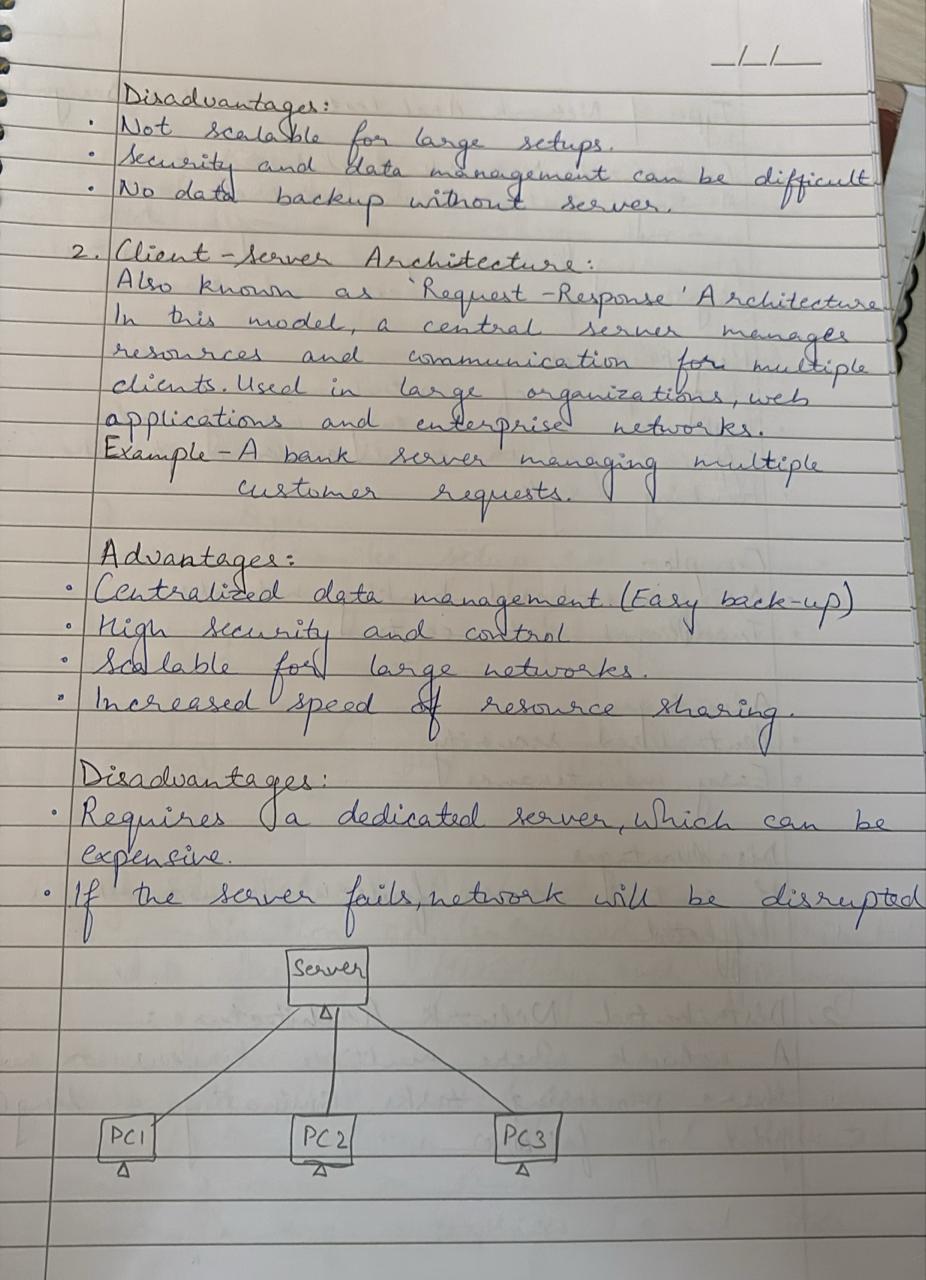 _/_/_
Disadvantages:
• Not scalable for large setups.
• Security and data management can be difficult
• No data backup without server.
2. Client-Server Architecture:
Also known as 'Request-Response' Architecture
In this model, a central server manages
resources and communication for multiple
clients. Used in large organizations, web
applications and enterprise networks.
Example - A bank server managing multiple
customer requests.
Advantages:
• Centralized data management. (Easy back-up)
• High security and control
• Scalable for large networks.
• Increased speed of resource sharing.
Disadvantages:
• Requires a dedicated server, which can be
expensive.
• If the server fails, network will be disrupted
Server
PC1 PC2 PC3